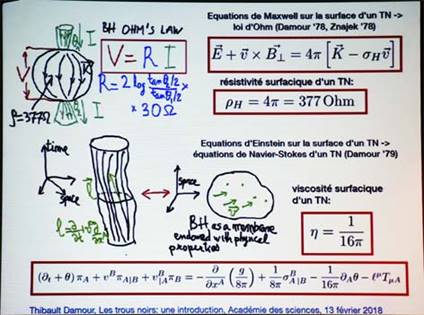 BH OHM'S LAW
I
V = R I
V
R = 2 log tan θ₂/2 / tan θ₁/2
× 30 Ω
ρ=377Ω
I
Equations de Maxwell sur la surface d'un TN ->
loi d'Ohm (Damour '78, Znajek '78)
E⃗ + v⃗ × B⃗⊥ = 4π [K⃗ − σ_H v⃗]
résistivité surfacique d'un TN:
ρ_H = 4π = 377 Ohm
Equations d'Einstein sur la surface d'un TN ->
équations de Navier-Stokes d'un TN (Damour '79)
time
space
space
BH as a membrane
endowed with physical
properties
viscosité surfacique
d'un TN:
η = 1/16π
(∂_t + θ) π_A + v^B π_A|B + v^B_|A π_B = − ∂/∂x^A (g/8π) + 1/8π σ^B_A|B − 1/16π ∂_A θ − ℓ^μ T_μA
Thibault Damour, Les trous noirs: une introduction, Académie des sciences, 13 février 2018